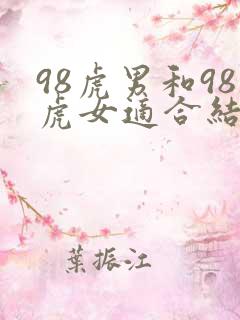 98虎男和98
虎女適合結
葉振江